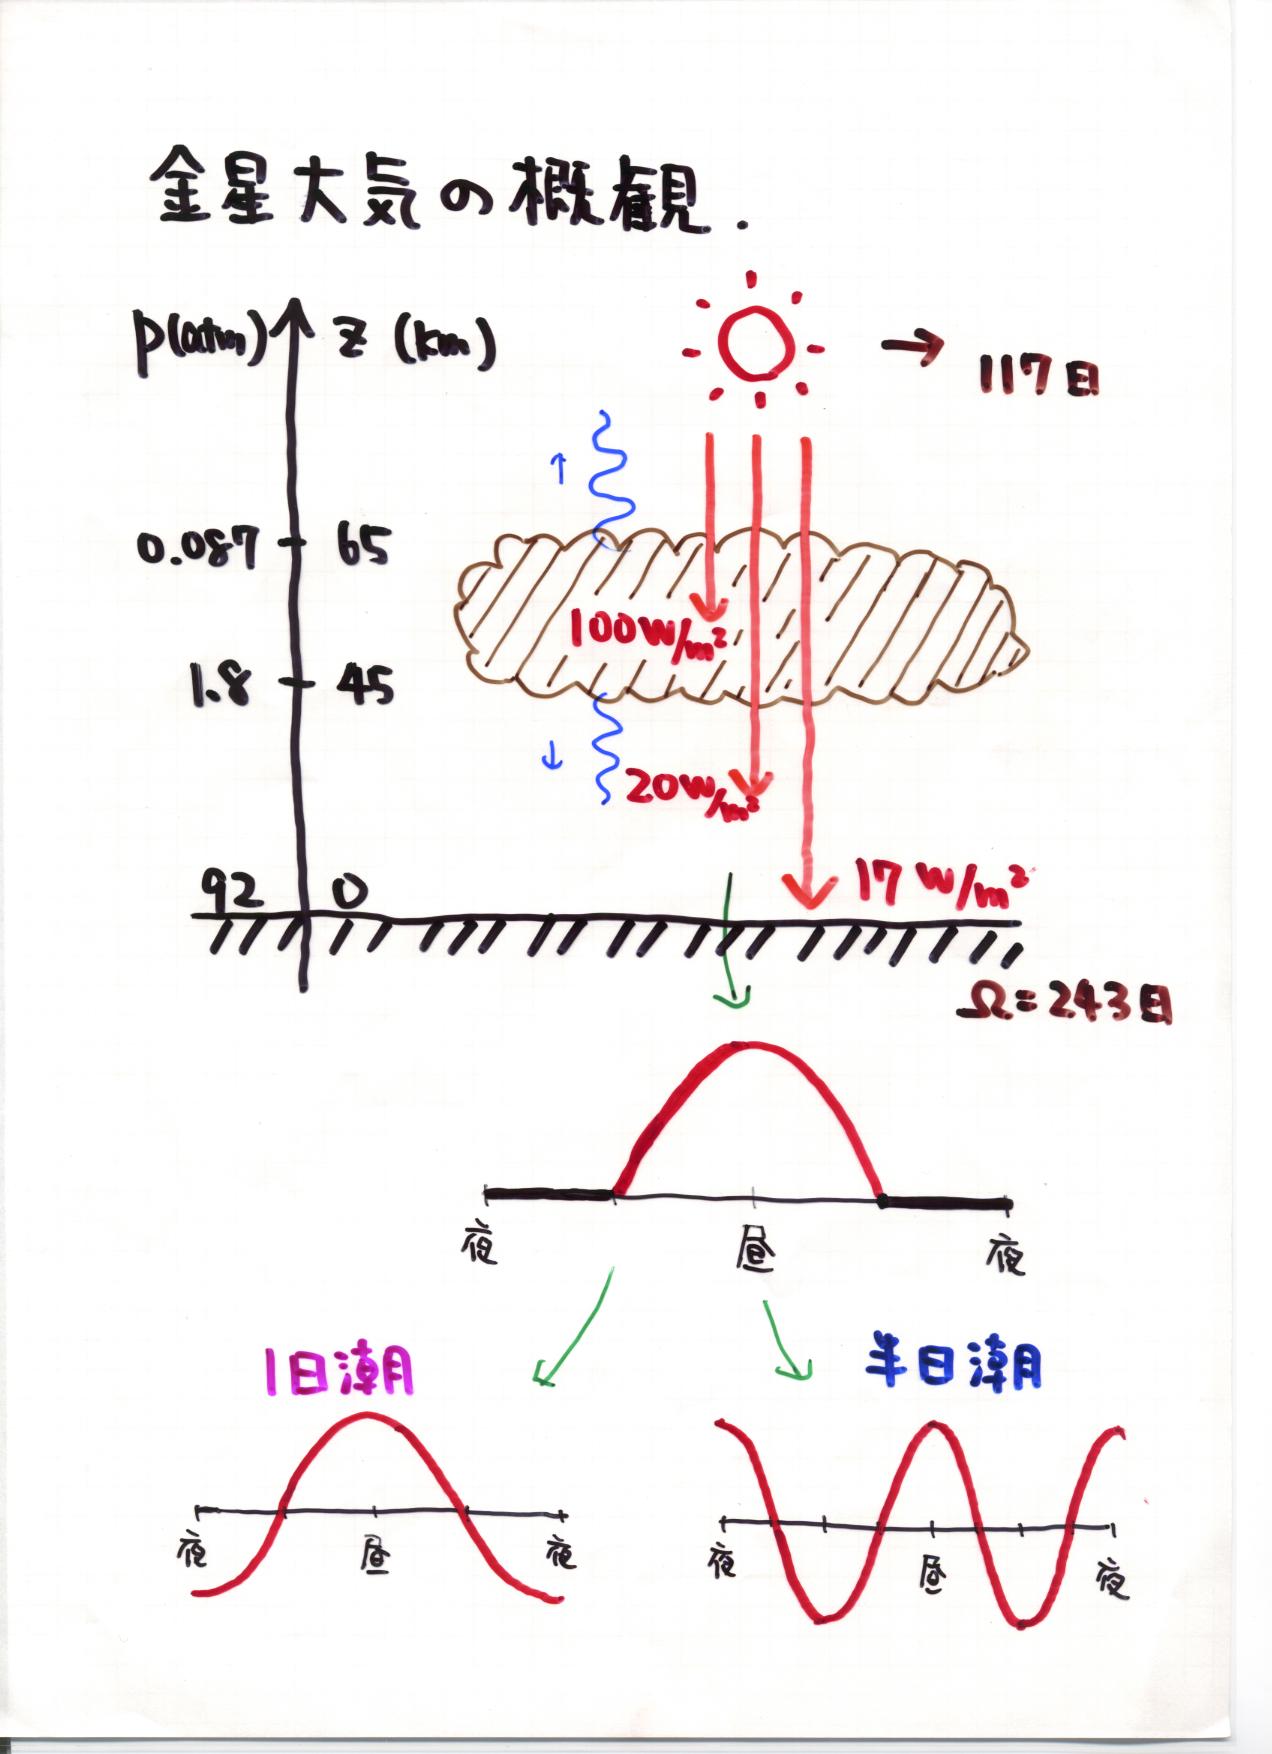 金星大気の概観.
p(atm) z (km)
117日
0.087 65
100W/m²
1.8 45
20W/m²
92 0
17 W/m²
Ω=243日
夜 昼 夜
1日潮 半日潮
夜 昼 夜 夜 昼 夜